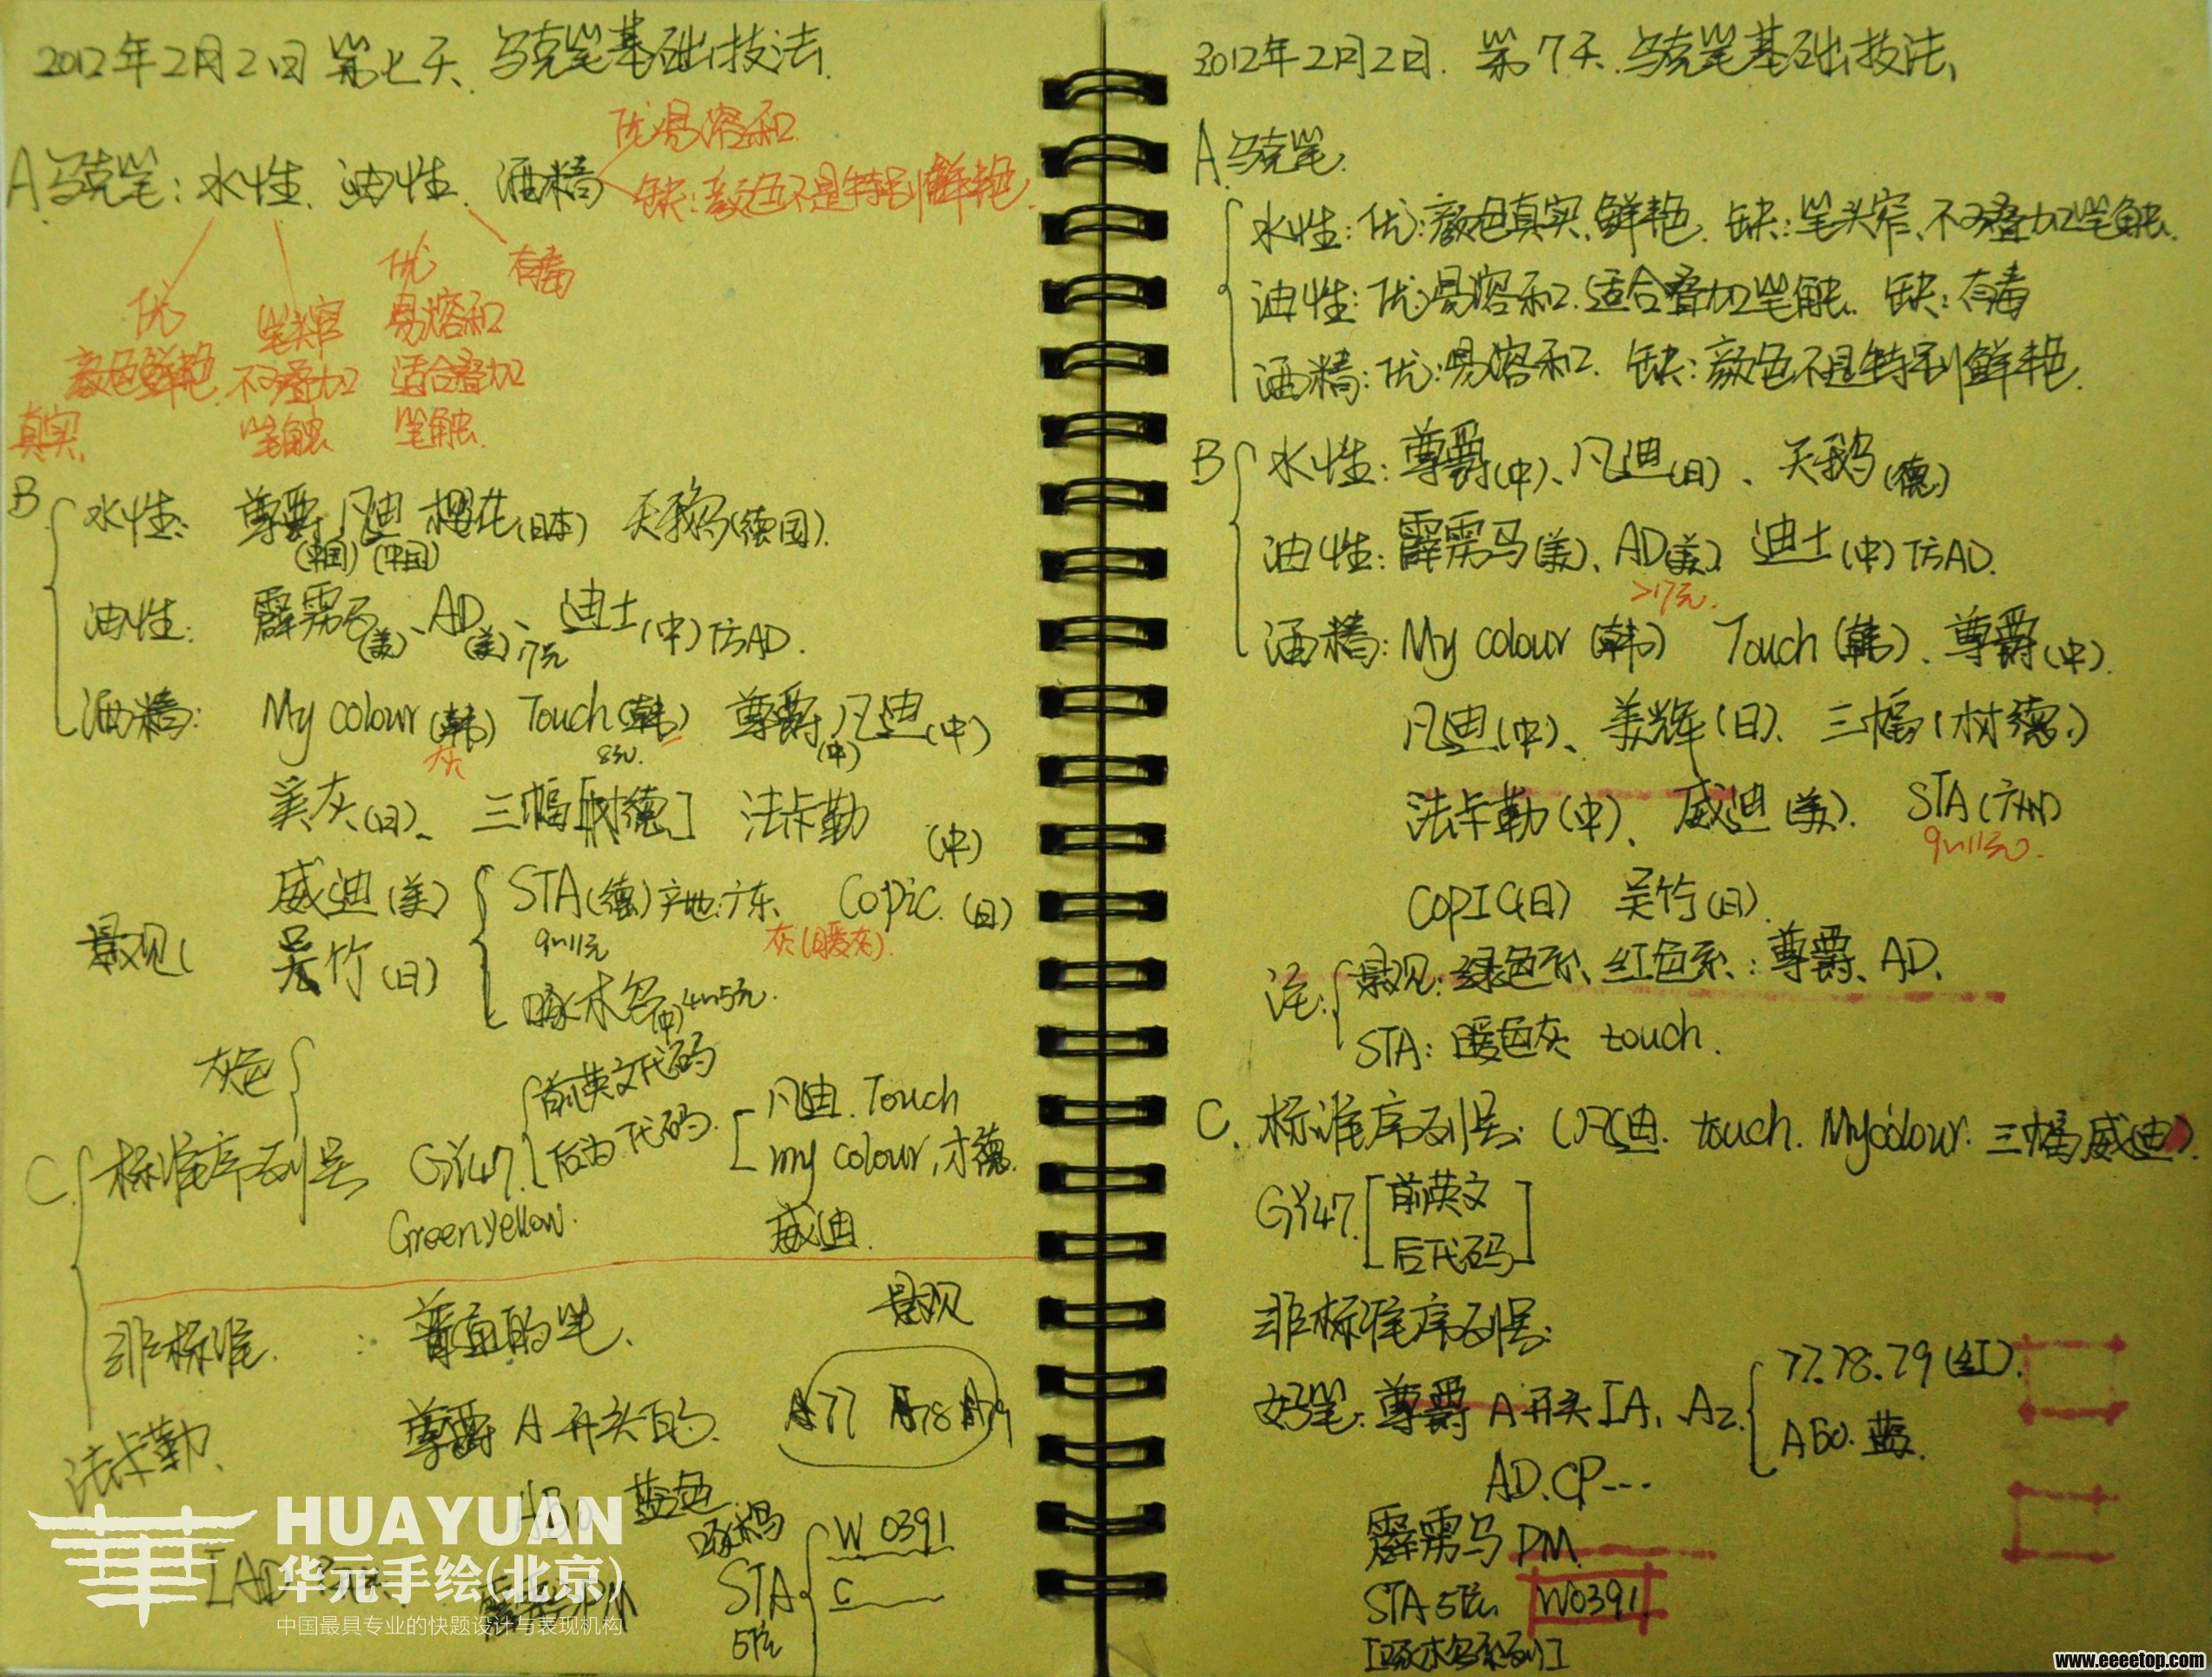 2012年2月2日 第七天. 马克笔基础技法.
A 马克笔: 水性. 油性. 酒精
优易溶和.
缺:颜色不是特别鲜艳.
优
颜色鲜艳
真实.
笔头窄
不可叠加
笔触
优
易溶和
适合叠加
笔触.
有毒
B
水性: 尊爵 凡迪 樱花(日本) 天鹅(德国).
(中国) (中国)
油性: 霹雳马(美)、AD(美)、17元 迪士(中)仿AD.
酒精: My colour(韩) Touch(韩) 尊爵(中) 凡迪(中)
灰
8元.
美灰(日)、 三幅[树德] 法卡勒(中)
威迪(美) STA(德)产地:广东. Copic (日)
9~11元
灰(暖灰).
景观 吴竹(日)
啄木鸟(中)4~5元.
灰色
C. 标准序列号 GY47. 前英文代码
后为代码.
Green yellow.
凡迪. Touch
my colour, 才德.
威迪.
非标准. : 普通的笔.
景观
尊爵 A 开头的. A77 A78 A79
法卡勒.
蓝色
啄木鸟
STA
5位
W 0391
C
HUAYUAN
华元手绘(北京)
中国最具专业的快题设计与表现机构
2012年2月2日. 第7天. 马克笔基础技法.
A 马克笔.
水性:优:颜色真实.鲜艳. 缺:笔头窄、不可叠加笔触.
油性:优:易溶和.适合叠加笔触. 缺:有毒
酒精:优:易溶和. 缺:颜色不是特别鲜艳.
B 水性:尊爵(中)、凡迪(日)、天鹅(德)
油性:霹雳马(美)、AD(美) 迪士(中)仿AD.
>17元.
酒精: My colour (韩) Touch(韩)、尊爵(中).
凡迪(中)、美辉(日)、三幅(树德)
法卡勒(中)、威迪(美). STA(广州)
9~11元.
COPIC(日) 吴竹(日).
注: 景观:绿色系、红色系:尊爵、AD.
STA: 暖色灰 touch.
C. 标准序列号:(凡迪. touch. Mycolour. 三幅威迪).
GY47. 前英文
后代码
非标准序列号:
好笔:尊爵 A开头[A1、A2. 77.78.79(红).
A50. 蓝.
AD.CP---
霹雳马 PM.
STA 5位. W0391
[啄木鸟系列]
www.eeeetop.com